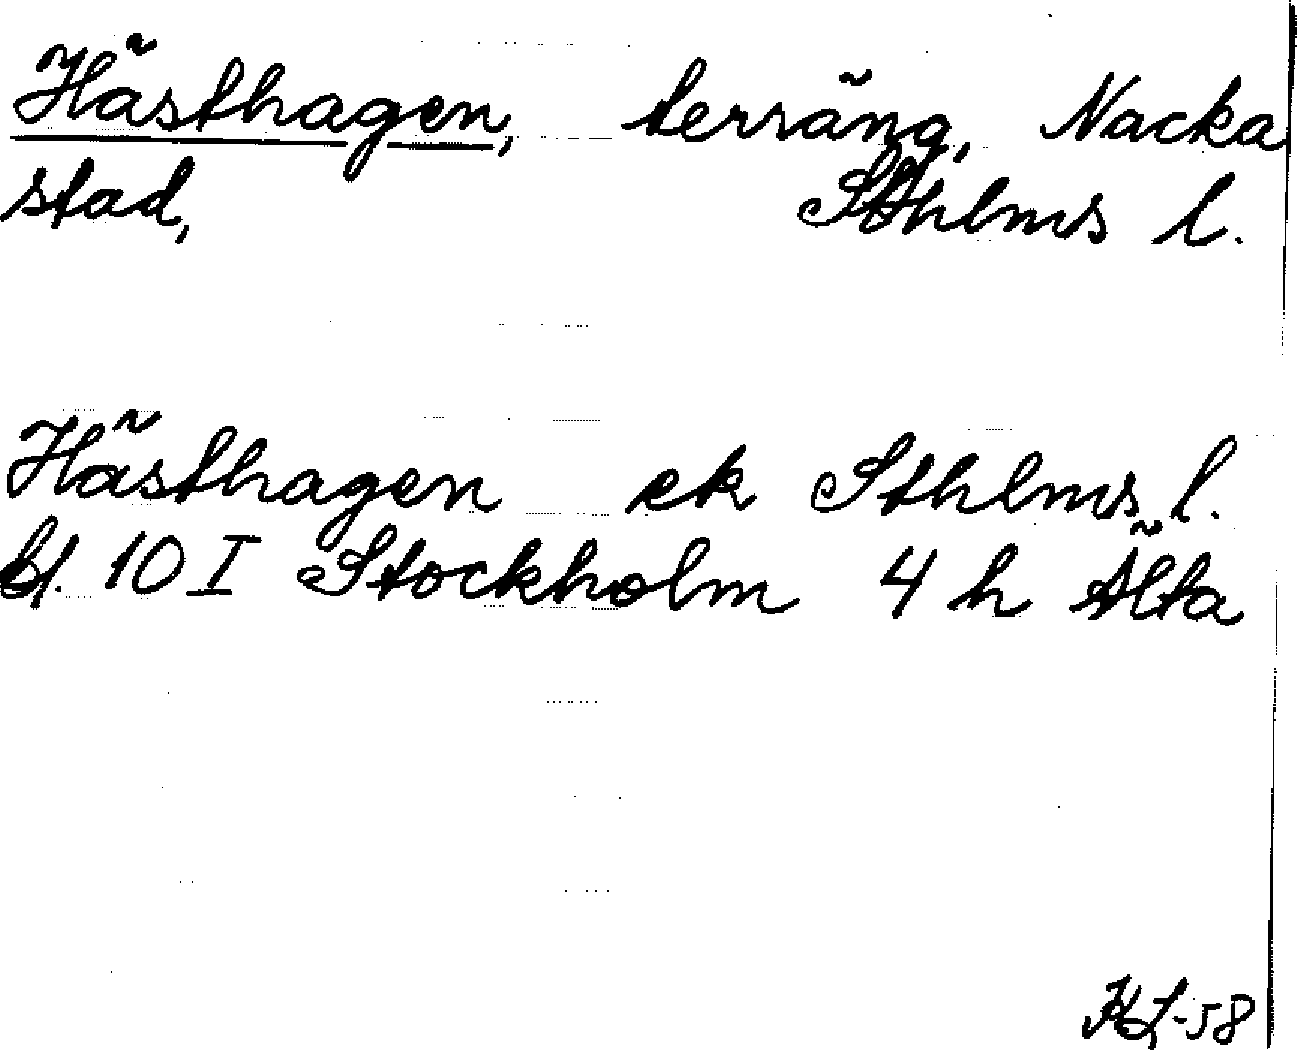 Hästhagen, terräng, Nacka
stad, Sthlms l.
Hästhagen ek Sthlms l.
bl. 10 I Stockholm 4 h Älta
KL-58